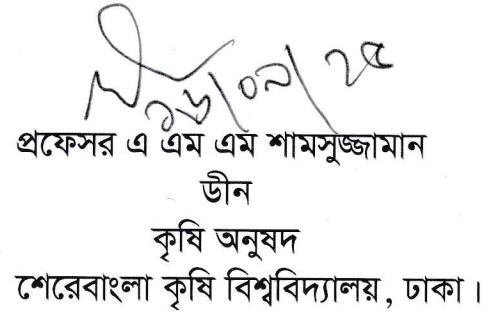 ১৬/০৯/২৫
প্রফেসর এ এম এম শামসুজ্জামান
ডীন
কৃষি অনুষদ
শেরেবাংলা কৃষি বিশ্ববিদ্যালয়, ঢাকা।